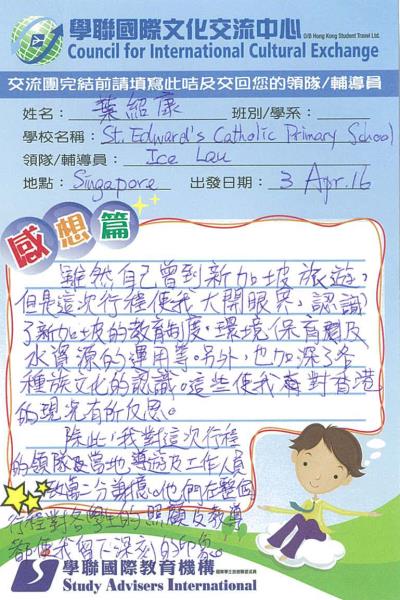 學聯國際文化交流中心 O/B Hong Kong Student Travel Ltd.
Council for International Cultural Exchange
交流團完結前請填寫此咭及交回您的領隊/輔導員
姓名： 葉紹康 班別/學系：
學校名稱：St. Edward's Catholic Primary School
領隊/輔導員： Ice Lau
地點：Singapore 出發日期： 3 Apr. 16
感想篇
雖然自己曾到新加坡旅遊，
但是這次行程使我大開眼界，認識
了新加坡的教育制度、環境保育及
水資源的運用等。另外，也加深了各
種族文化的認識。這些使我再對香港
的現況有所反思。
除此，我對這次行程
的領隊及當地導遊及工作人員
十分謝意。他們在整個
行程對各學生的照顧及教導
都使我留下深刻的印象。
學聯國際教育機構
Study Advisers International